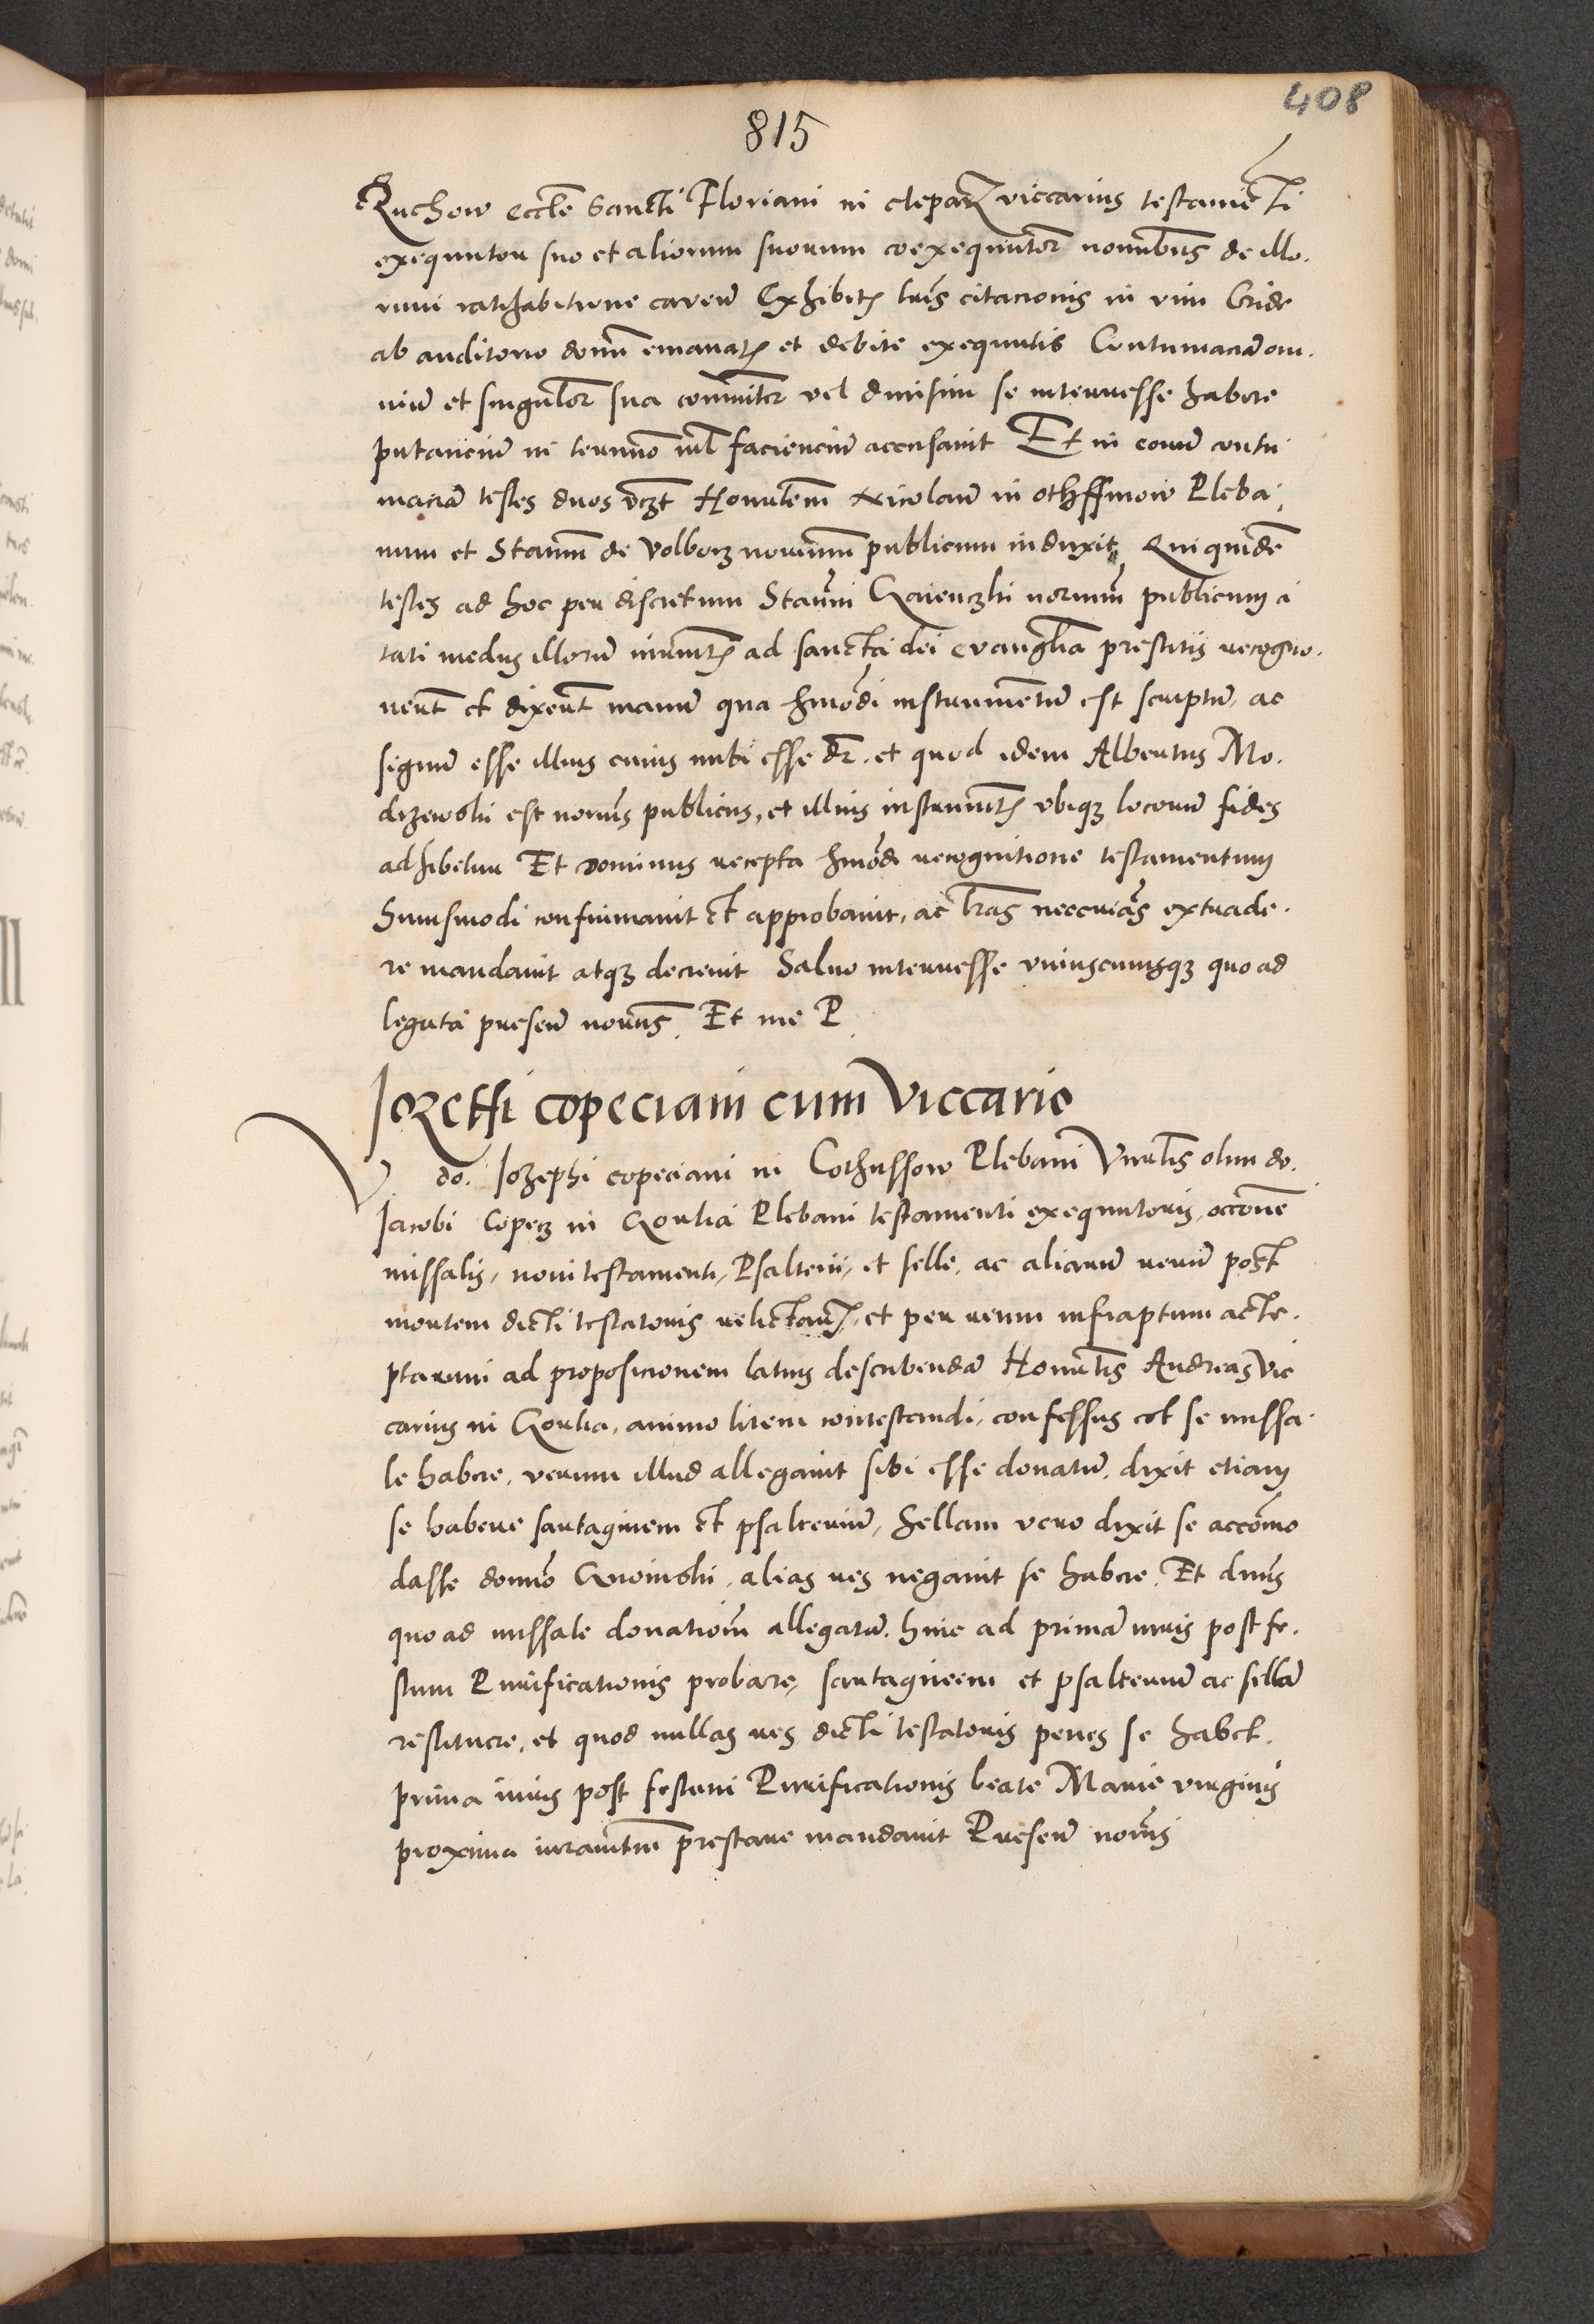 408
815
Ruchow eccle Sancti Floriani in clepar viccarius testamenti
exequutor suo et aliorum suorum coexequutor nominibus de illo.
rum ratihabitione caven Exhibit lris citacionis in vim Cride
ab auditorio domi emanat et debite exequutis Contumacia om.
niu et singulor sua comuniter vel diuisim se interresse habere
putanciu in termino nul faciencin accusauit Et in eoru contu
macia testes duos vczt Honutem Nicolau in othffinow Pleba
num et Stanm de Volborz norium publicum induxit Qui quide
testes ad hoc per discretum Stanni Gaienczki norium publicum ci
tati medus illoru iuramt ad sancta dei evanglia prestitis recogno.
uerut et dixerut manu qua hmodi instrumentu est scriptu, ac
signu esse illius cuius inibi esse dr. et quod idem Albertus Mo.
drzewski est norius publicus, et illius instrumt vbiqz locoru fides
adhibetur Et Dominus recepta hmodi recognitione testamentum
huiusmodi confirmauit et approbauit, ac lras neccrias extrade.
re mandauit atqz decreuit Saluo interresse vniuscuiusqz quo ad
legata presen norius. Et me P
Iozeffi copeciani cum viccario
V do. Iozephi copeciani in Cothussow Plebani Vnutis olim do.
Iacobi Copecz in Gorlia Plebani testamenti exequutoris, occone
missalis, noui testamenti, Psalterii, et selle, ac aliaru reru post
mortem dicti testatoris relictaru, et per reum infraptum acte.
ptarum ad proposicionem latius describenda Honutis Andreas vic
carius in Gorlia, animo litem contestandi, confessus est se missa.
le habere, verum illud allegauit sibi esse donatu, dixit etiam
se habere sartaginem et psalteriu, Sellam vero dixit se accomo
dasse domino Gnoinski, alias res negauit se habere. Et dnus
quo ad missale donatiom allegatu. hinc ad prima iuris post fe.
stum Purificationis probare, sartagineem et psalteriu ac sella
restituere, et quod nullas res dicti testatoris penes se habet.
prima iuris post festum Purificationis beate Marie virginis
proxima iuramtum prestare mandauit Presen norius